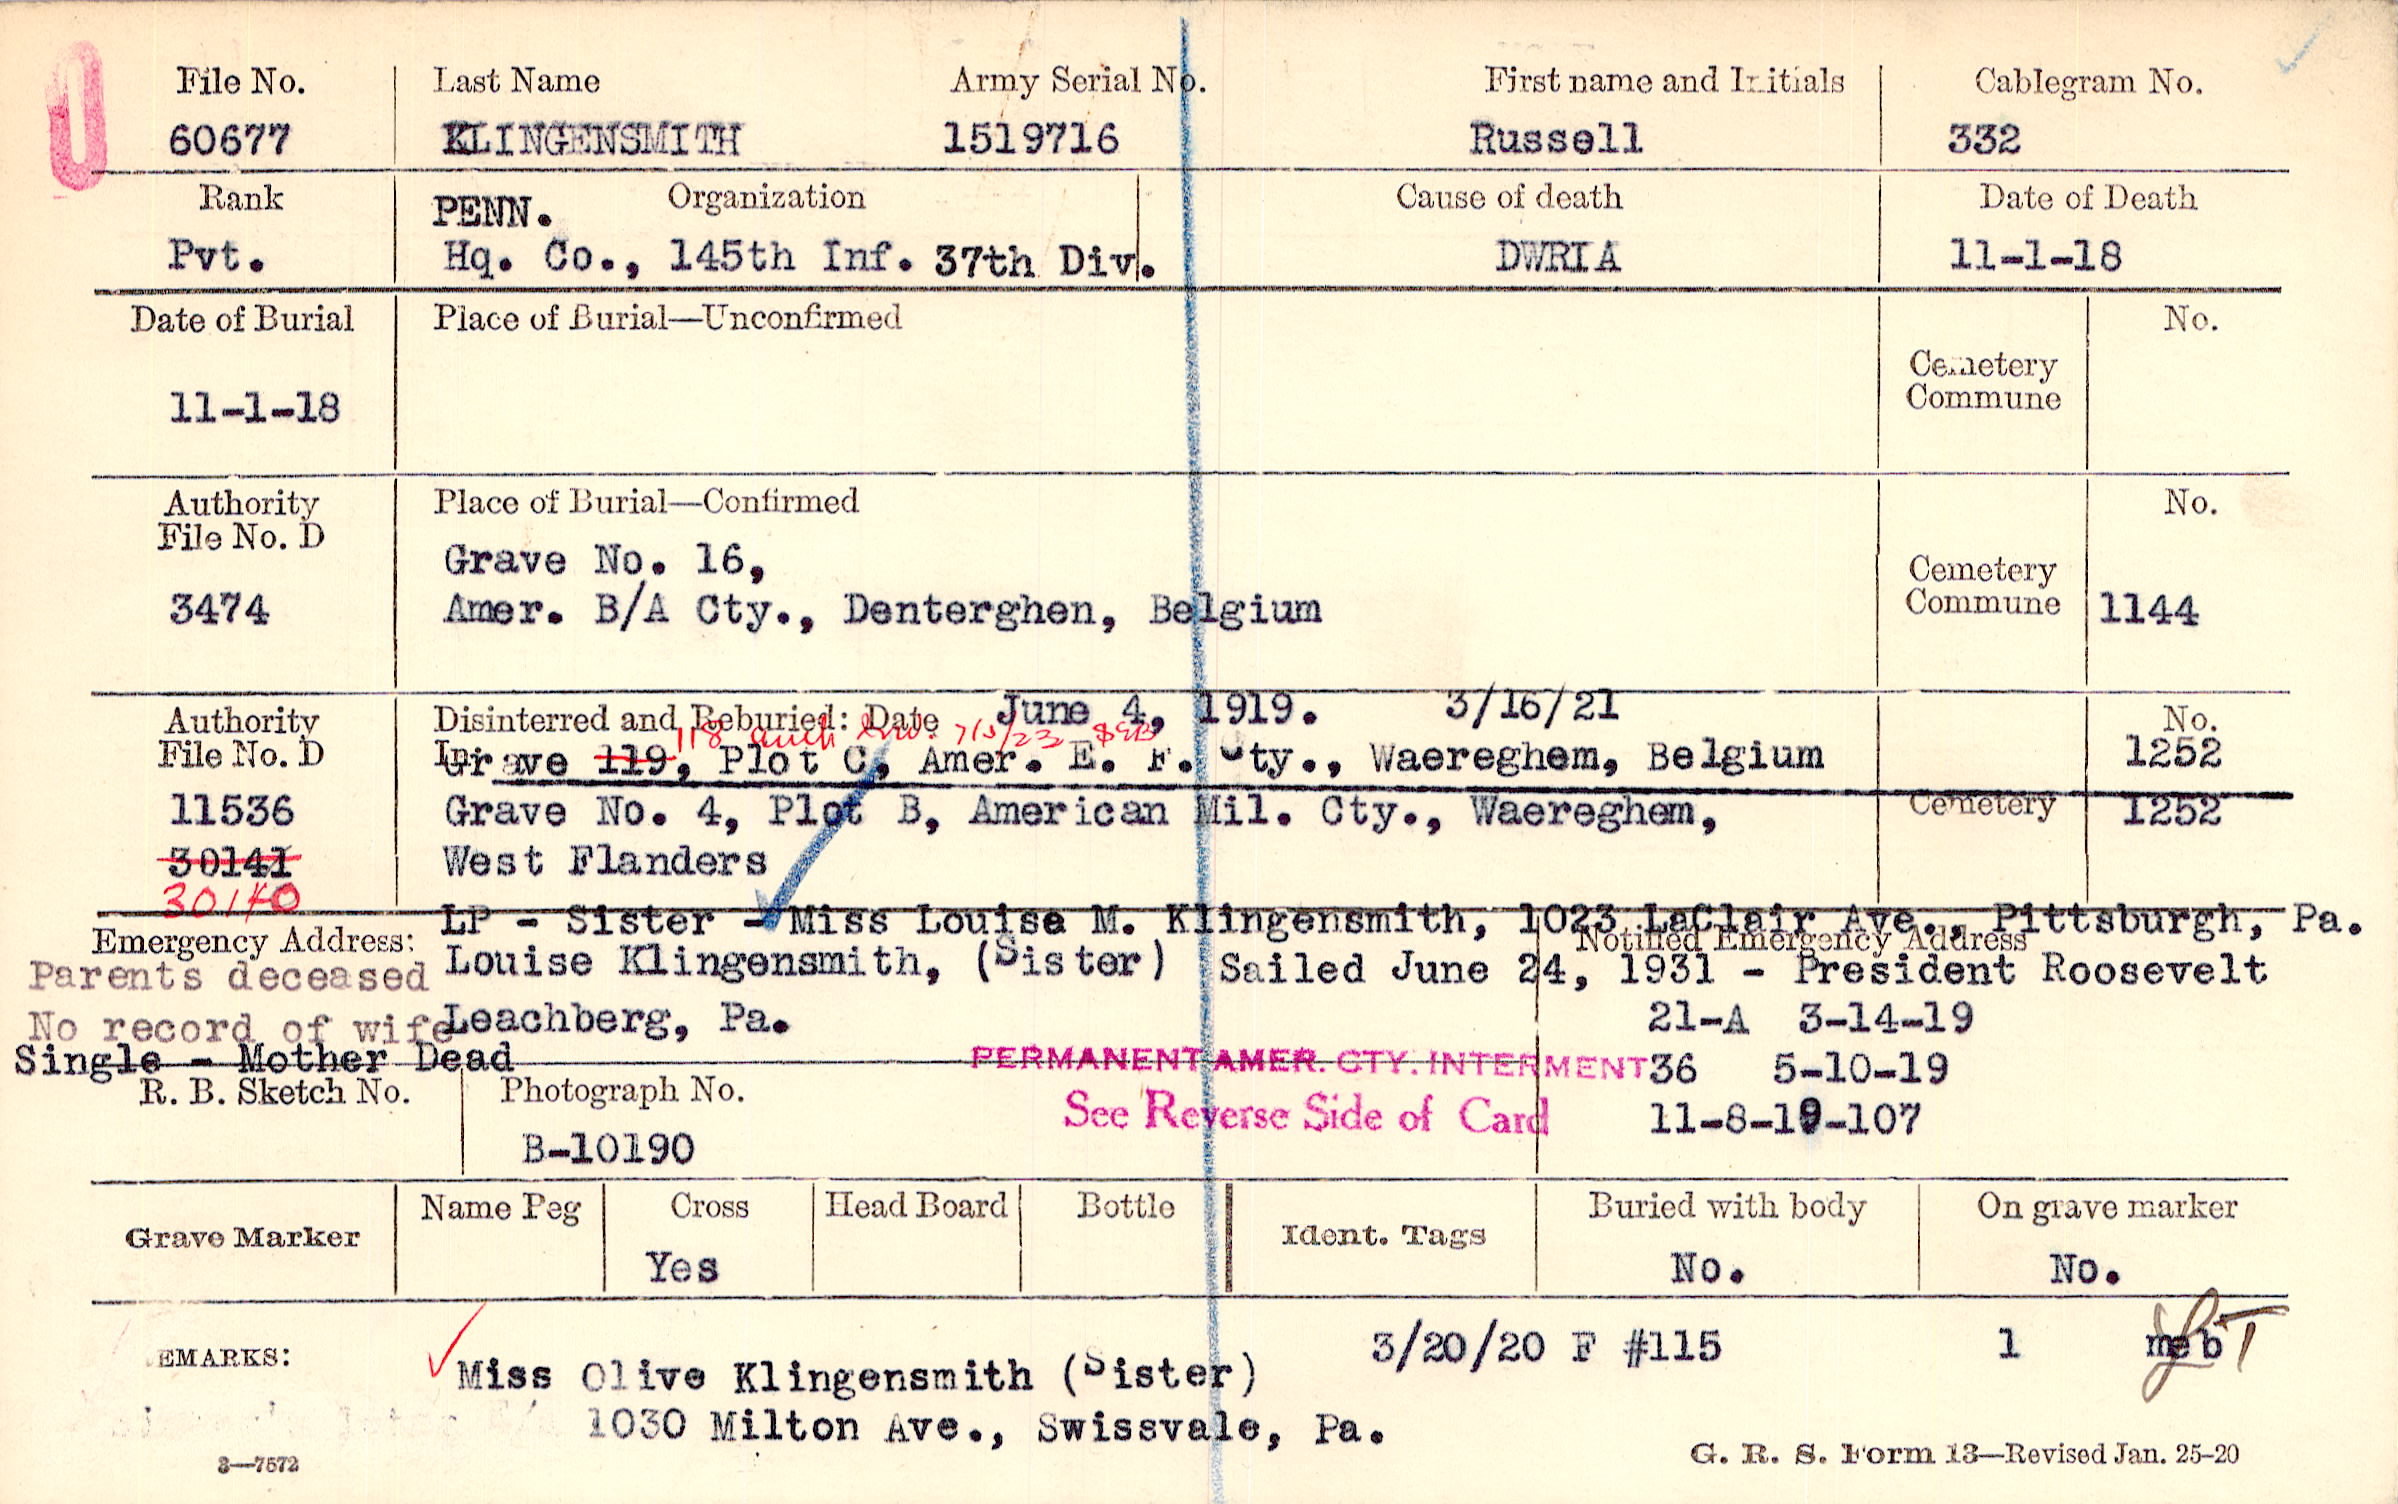 File No. Last Name Army Serial No. First name and Initials Cablegram No.
60677 KLINGENSMITH 1519716 Russell 332
Rank PENN. Organization Cause of death Date of Death
Pvt. Hq. Co., 145th Inf. 37th Div. DWRIA 11-1-18
Date of Burial Place of Burial—Unconfirmed No.
Cemetery
Commune
11-1-18
Authority Place of Burial—Confirmed No.
File No. D
Grave No. 16,
Cemetery
3474 Amer. B/A Cty., Denterghen, Belgium Commune 1144
Authority Disinterred and Reburied: Date June 4, 1919. 3/16/21 No.
118 7/5/23
File No. D In: Grave 119, Plot C, Amer. E. F. Cty., Waereghem, Belgium 1252
11536 Grave No. 4, Plot B, American Mil. Cty., Waereghem, Cemetery 1252
30141 West Flanders
30140
LP - Sister - Miss Louise M. Klingensmith, 1023 LaClair Ave., Pittsburgh, Pa.
Emergency Address: Notified Emergency Address
Parents deceased Louise Klingensmith, (Sister) Sailed June 24, 1931 - President Roosevelt
No record of wife Leachberg, Pa. 21-A 3-14-19
Single - Mother Dead PERMANENT AMER. CTY. INTERMENT 36 5-10-19
R. B. Sketch No. Photograph No. See Reverse Side of Card 11-8-19-107
B-10190
Name Peg Cross Head Board Bottle Buried with body On grave marker
Grave Marker Ident. Tags
Yes No. No.
3/20/20 F #115 1 meb
EMARKS: Miss Olive Klingensmith (Sister)
1030 Milton Ave., Swissvale, Pa.
3—7572 G. R. S. Form 13—Revised Jan. 25-20